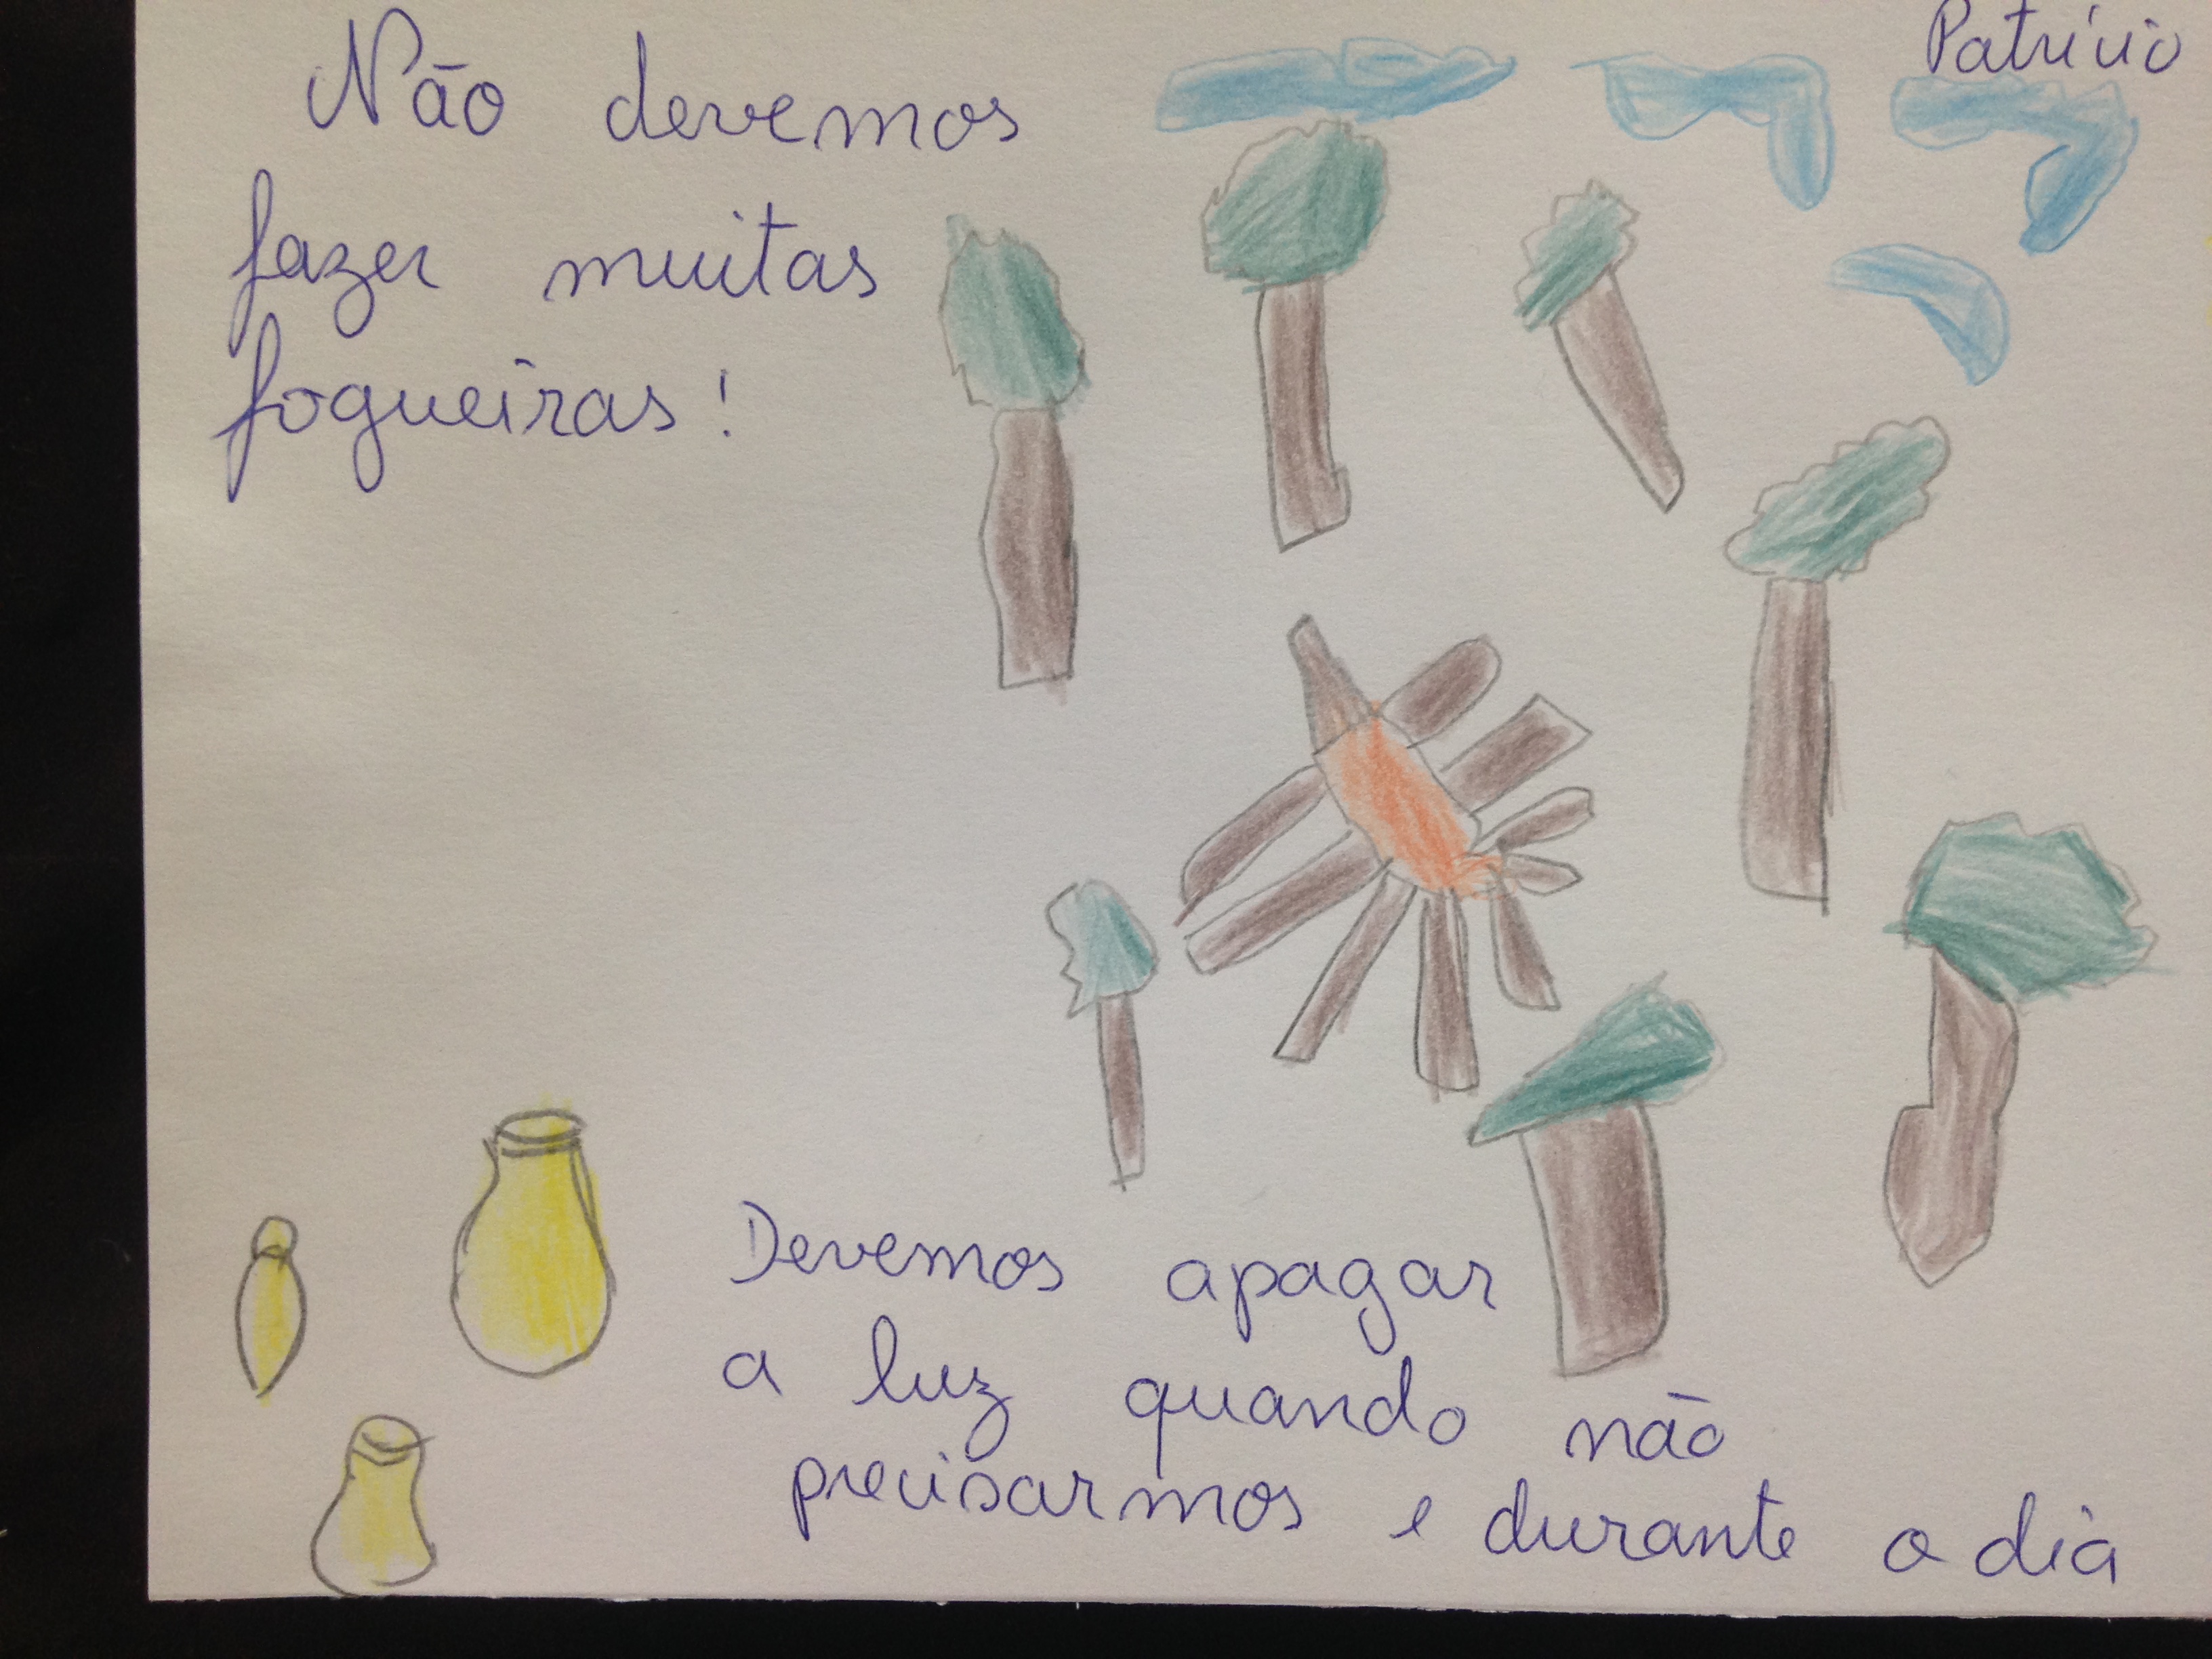 Patrício
Não devemos
fazer muitas
fogueiras!
Devemos apagar
a luz quando não
precisarmos e durante o dia